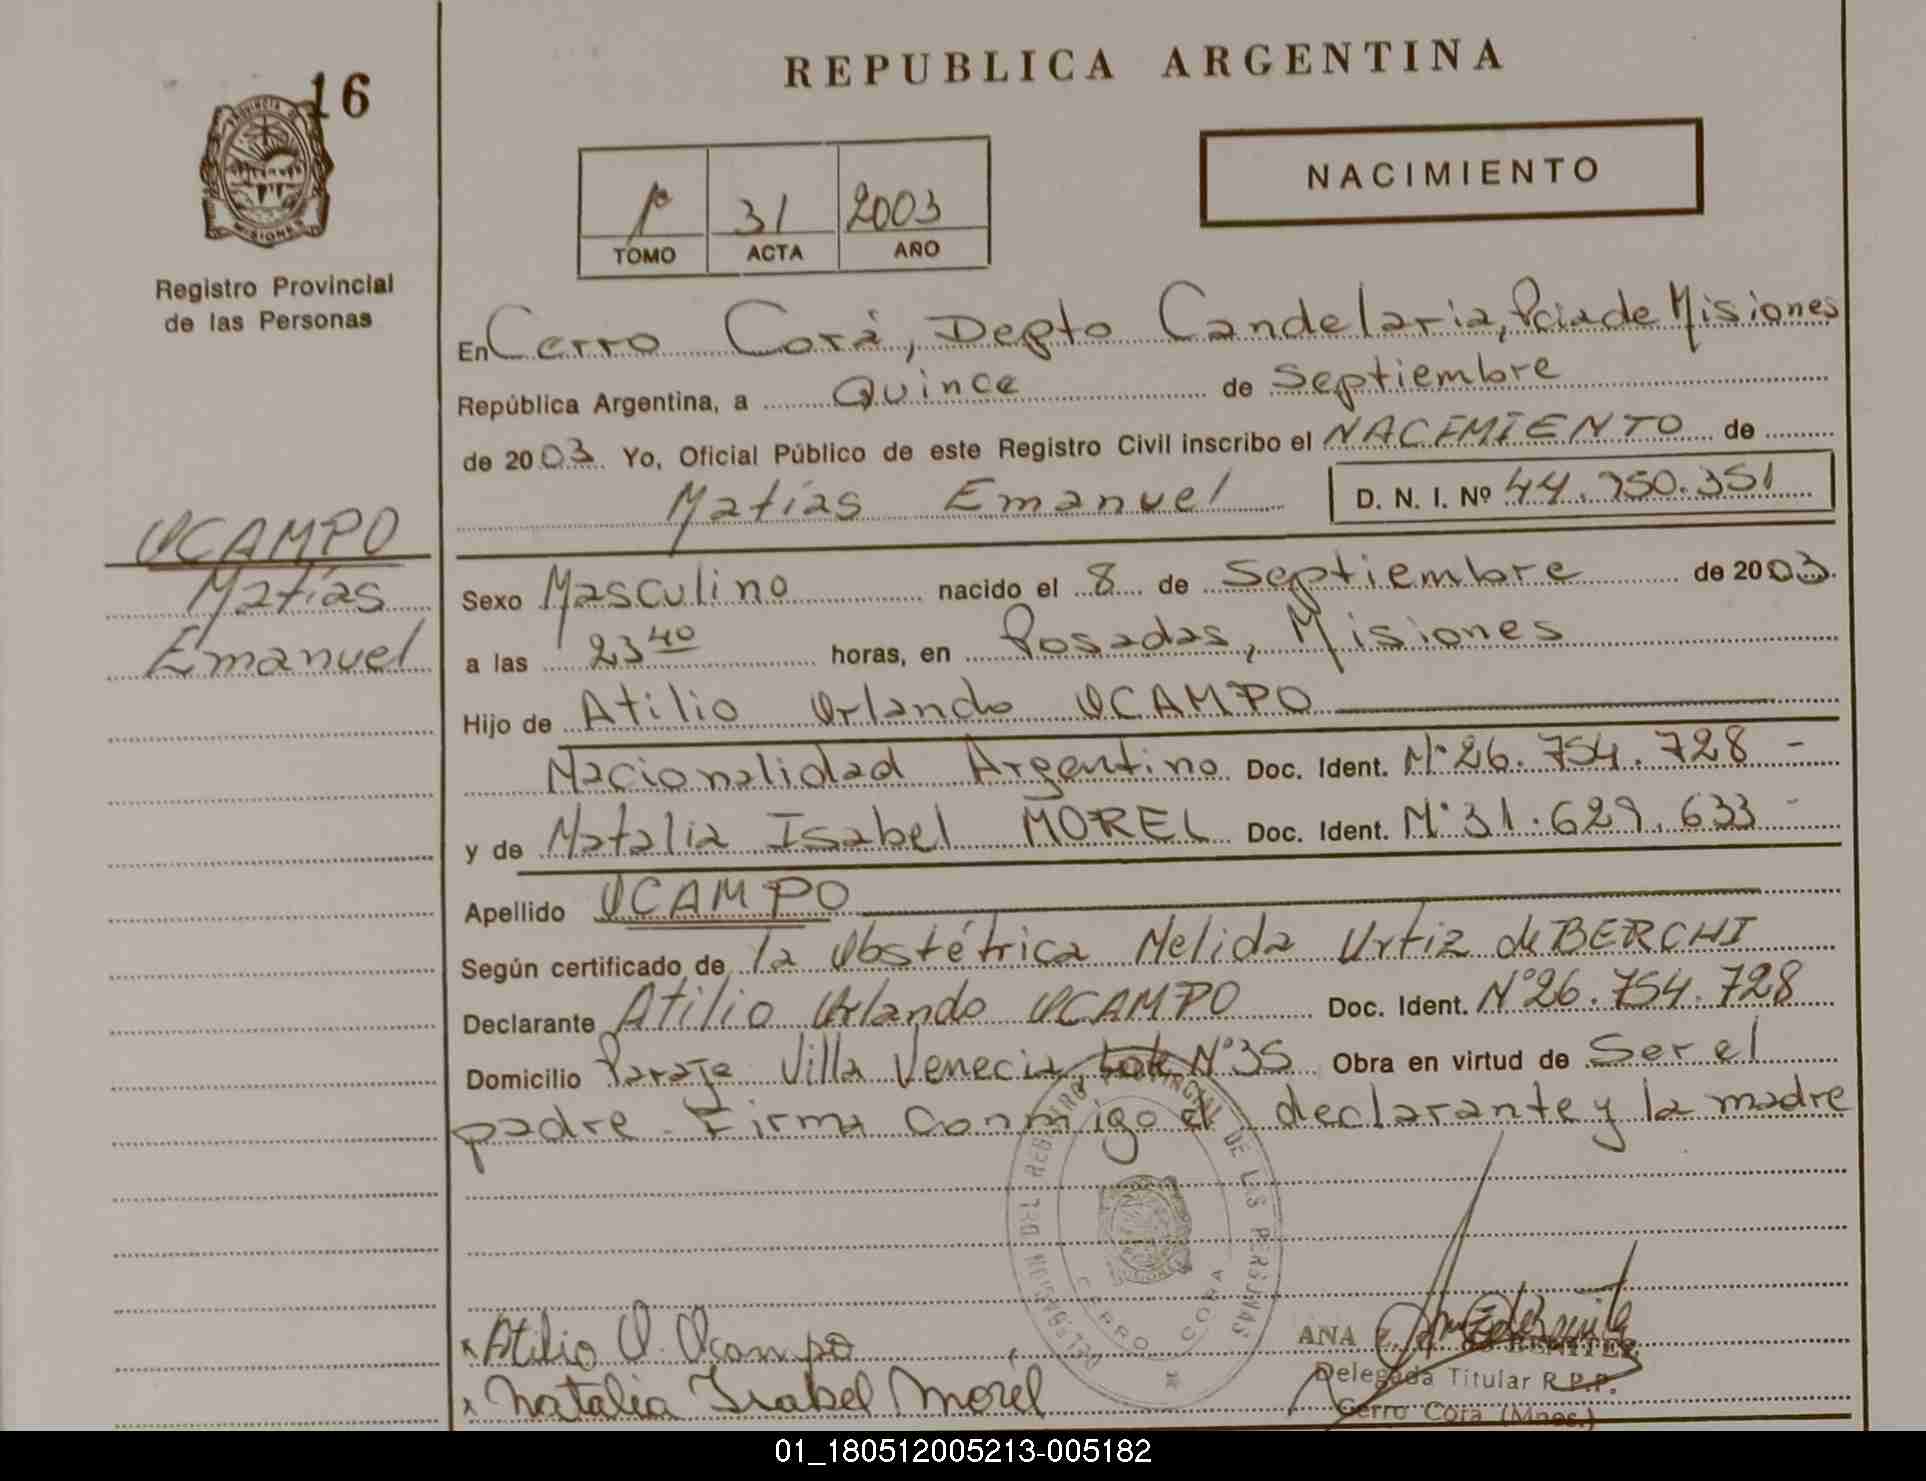 REPUBLICA ARGENTINA
16
PROVINCIA DE
MISIONES
Registro Provincial
de las Personas
1º 31 2003
TOMO ACTA AÑO
NACIMIENTO
En Cerro Corá, Depto Candelaria, Pcia de Misiones
República Argentina, a Quince de Septiembre
de 2003 Yo, Oficial Público de este Registro Civil inscribo el NACIMIENTO de
Matías Emanuel D. N. I. Nº 44.750.351
OCAMPO
Matías
Emanuel
Sexo Masculino nacido el 8 de Septiembre de 2003.
a las 23 40 horas, en Posadas, Misiones
Hijo de Atilio Orlando OCAMPO
Nacionalidad Argentino Doc. Ident. Nº 26.754.728 -
y de Natalia Isabel MOREL Doc. Ident. Nº 31.629.633 -
Apellido OCAMPO
Según certificado de la Obstétrica Nelida Ortiz de BERCHI
Declarante Atilio Orlando OCAMPO Doc. Ident. Nº 26.754.728
Domicilio Paraje Villa Venecia, Lote Nº 35 Obra en virtud de Ser el
padre - Firma conmigo el declarante y la madre
DELEGACION DEL REGISTRO PROVINCIAL DE LAS PERSONAS
CERRO CORA
x Atilio O. Ocampo
x Natalia Isabel Morel
ANA BENITEZ
Delegada Titular R.P.P.
Cerro Corá (Mnes.)
01_180512005213-005182